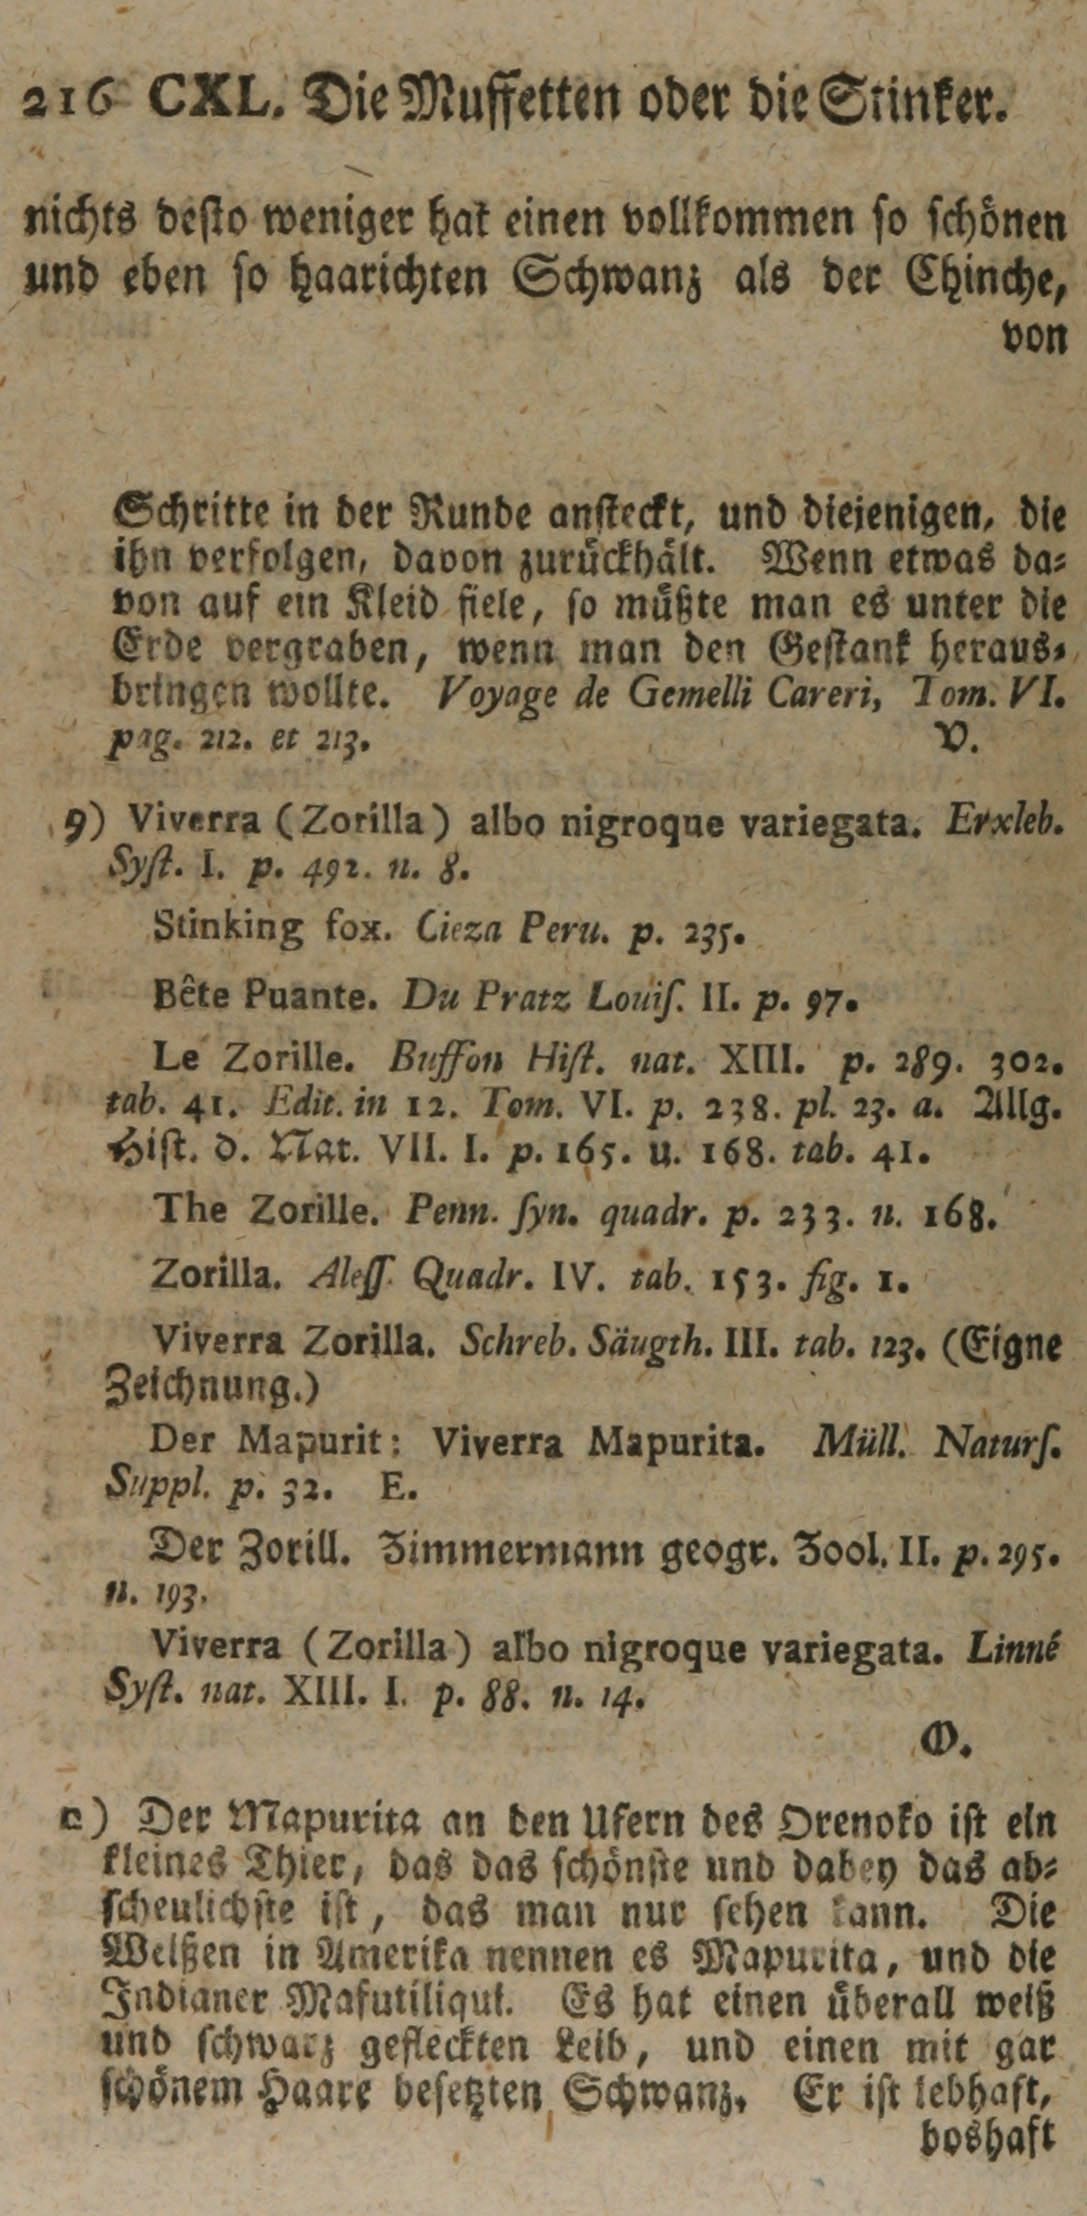 216 CXL. Die Muffetten oder die Stinker.
nichts desto weniger hat einen vollkommen so schönen
und eben so haarichten Schwanz als der Chinche,
von
Schritte in der Runde ansteckt, und diejenigen, die
ihn verfolgen, davon zurückhält. Wenn etwas da⸗
von auf ein Kleid fiele, so müßte man es unter die
Erde vergraben, wenn man den Gestank heraus⸗
bringen wollte. Voyage de Gemelli Careri, Tom. VI.
pag. 212. et 213. V.
9) Viverra (Zorilla) albo nigroque variegata. Erxleb.
Syſt. I. p. 492. n. 8.
Stinking fox. Cieza Peru. p. 235.
Bête Puante. Du Pratz Louiſ. II. p. 97.
Le Zorille. Buffon Hiſt. nat. XIII. p. 289. 302.
tab. 41. Edit. in 12. Tom. VI. p. 238. pl. 23. a. Allg.
Hist. d. Nat. VII. I. p. 165. u. 168. tab. 41.
The Zorille. Penn. ſyn. quadr. p. 233. n. 168.
Zorilla. Aleſſ. Quadr. IV. tab. 153. fig. 1.
Viverra Zorilla. Schreb. Säugth. III. tab. 123. (Eigne
Zeichnung.)
Der Mapurit: Viverra Mapurita. Müll. Naturſ.
Suppl. p. 32. E.
Der Zorill. Zimmermann geogr. Zool. II. p. 295.
n. 193.
Viverra (Zorilla) albo nigroque variegata. Linné
Syſt. nat. XIII. I. p. 88. n. 14.
O.
c) Der Mapurita an den Ufern des Orenoko ist ein
kleines Thier, das das schönste und dabey das ab⸗
scheulichste ist, das man nur sehen kann. Die
Weißen in Amerika nennen es Mapurita, und die
Indianer Mafutiliqui. Es hat einen überall weiß
und schwarz gefleckten Leib, und einen mit gar
schönem Haare besetzten Schwanz. Er ist lebhaft,
boshaft